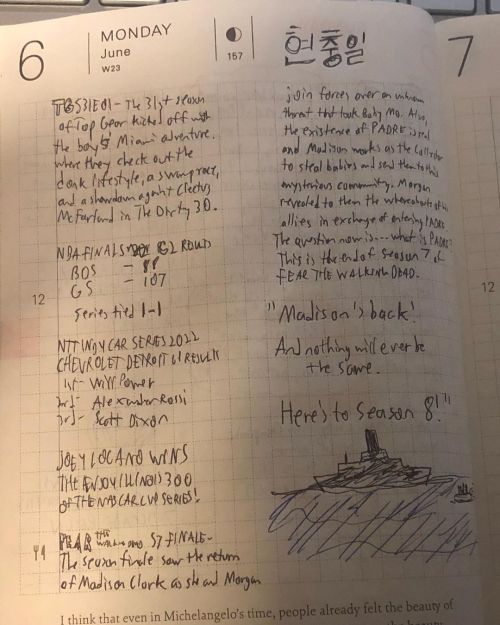 6
MONDAY
June
W23
157
현충일
7
TGS31E01 - The 31st season
of Top Gear kicked off with
the boys Miami adventure.
where they check out the
donk lifestyle, a swamp race,
and a showdown against Cleetus
McFarland in The Dirty 30.
NBA FINALS G2 ROUND
BOS = 88
GS = 107
12
Series tied 1-1
NTT INDYCAR SERIES 2022
CHEVROLET DETROIT GP RESULTS
1st - Will Power
2nd - Alexander Rossi
3rd - Scott Dixon
JOEY LOGANO WINS
THE ENJOY ILLINOIS 300
OF THE NASCAR CUP SERIES!
FEAR THE WALKING DEAD S7 FINALE -
The season finale saw the return
of Madison Clark as she and Morgan
join forces over an unknown
threat that took Baby Mo. Also,
the existence of PADRE is real
and Madison works as the Collector
to steal babies and send them to this
mysterious community. Morgan
revealed to them the whereabouts of his
allies in exchange of entering PADRE
The question now is... what is PADRE?
This is the end of Season 7 of
FEAR THE WALKING DEAD.
"Madison's back!
And nothing will ever be
the same.
Here's to Season 8!"
12
I think that even in Michelangelo's time, people already felt the beauty of